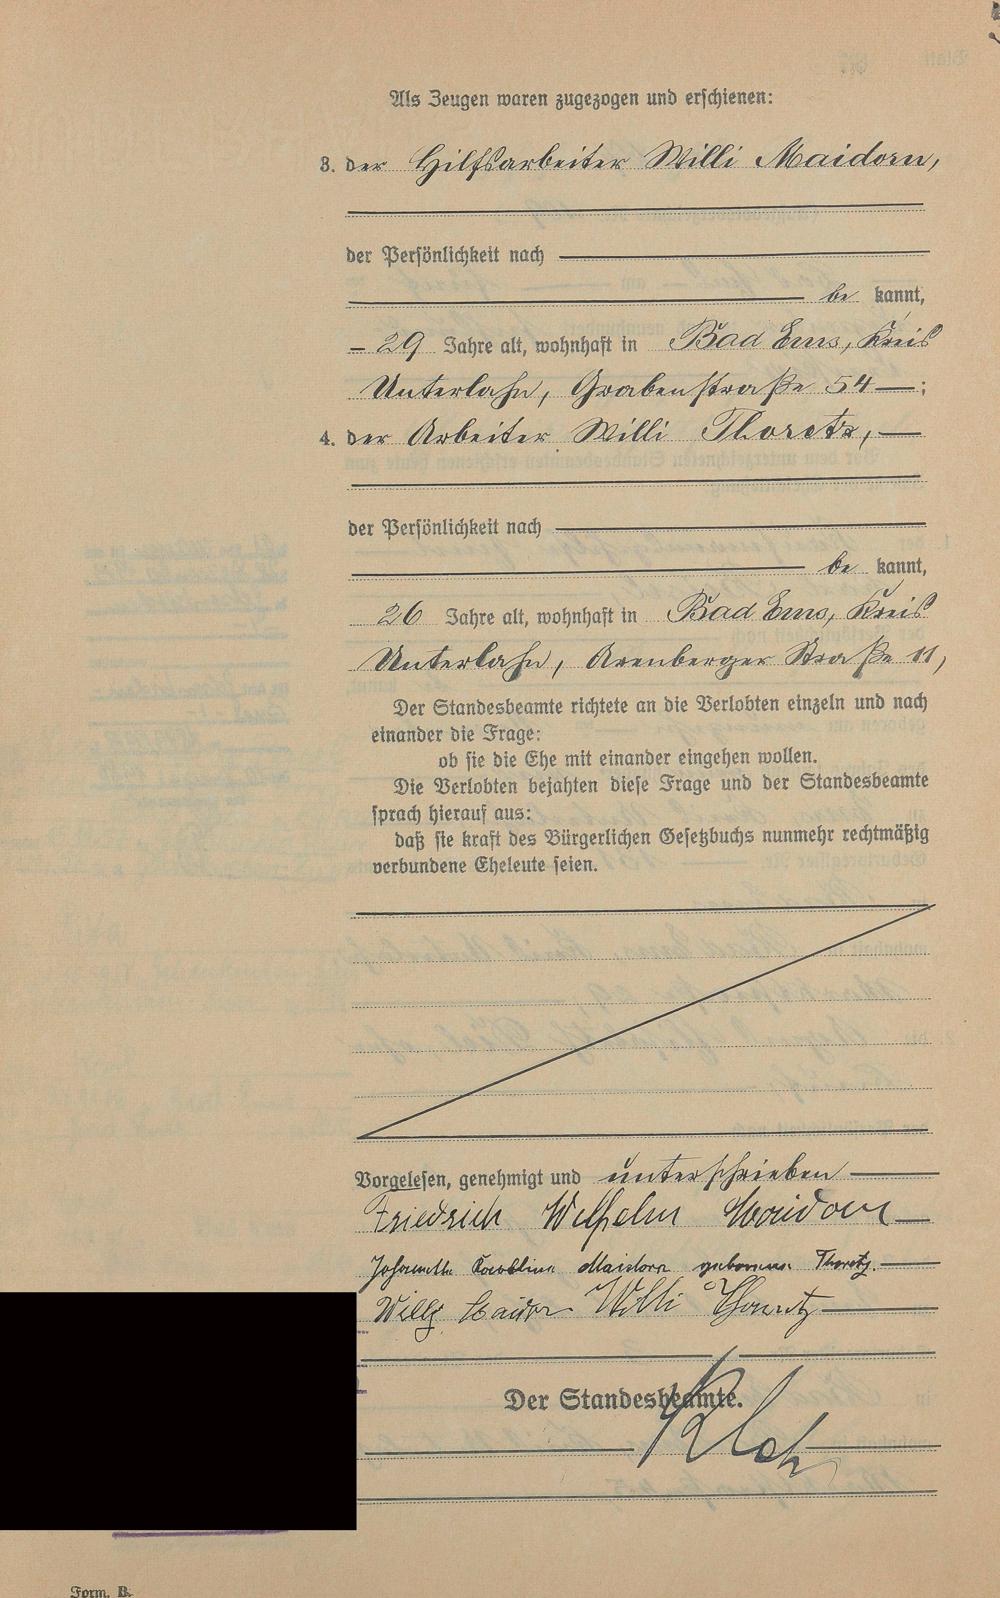 Als Zeugen waren zugezogen und erschienen:
3. der Hilfsarbeiter Willi Maidorn,
der Persönlichkeit nach
be kannt,
29 Jahre alt, wohnhaft in Bad Ems, Kreis
Unterlahn, Grabenstraße 54 ;
4. der Arbeiter Willi Thoretz,
der Persönlichkeit nach
be kannt,
26 Jahre alt, wohnhaft in Bad Ems, Kreis
Unterlahn, Arenberger Straße 11,
Der Standesbeamte richtete an die Verlobten einzeln und nach
einander die Frage:
ob sie die Ehe mit einander eingehen wollen.
Die Verlobten bejahten diese Frage und der Standesbeamte
sprach hierauf aus:
daß sie kraft des Bürgerlichen Gesetzbuchs nunmehr rechtmäßig
verbundene Eheleute seien.
Vorgelesen, genehmigt und unterschrieben
Friedrich Wilhelm Maidorn
Maidorn geborene Thoretz.
Willy Maidorn Willi Thoretz
Der Standesbeamte.
Form. B.